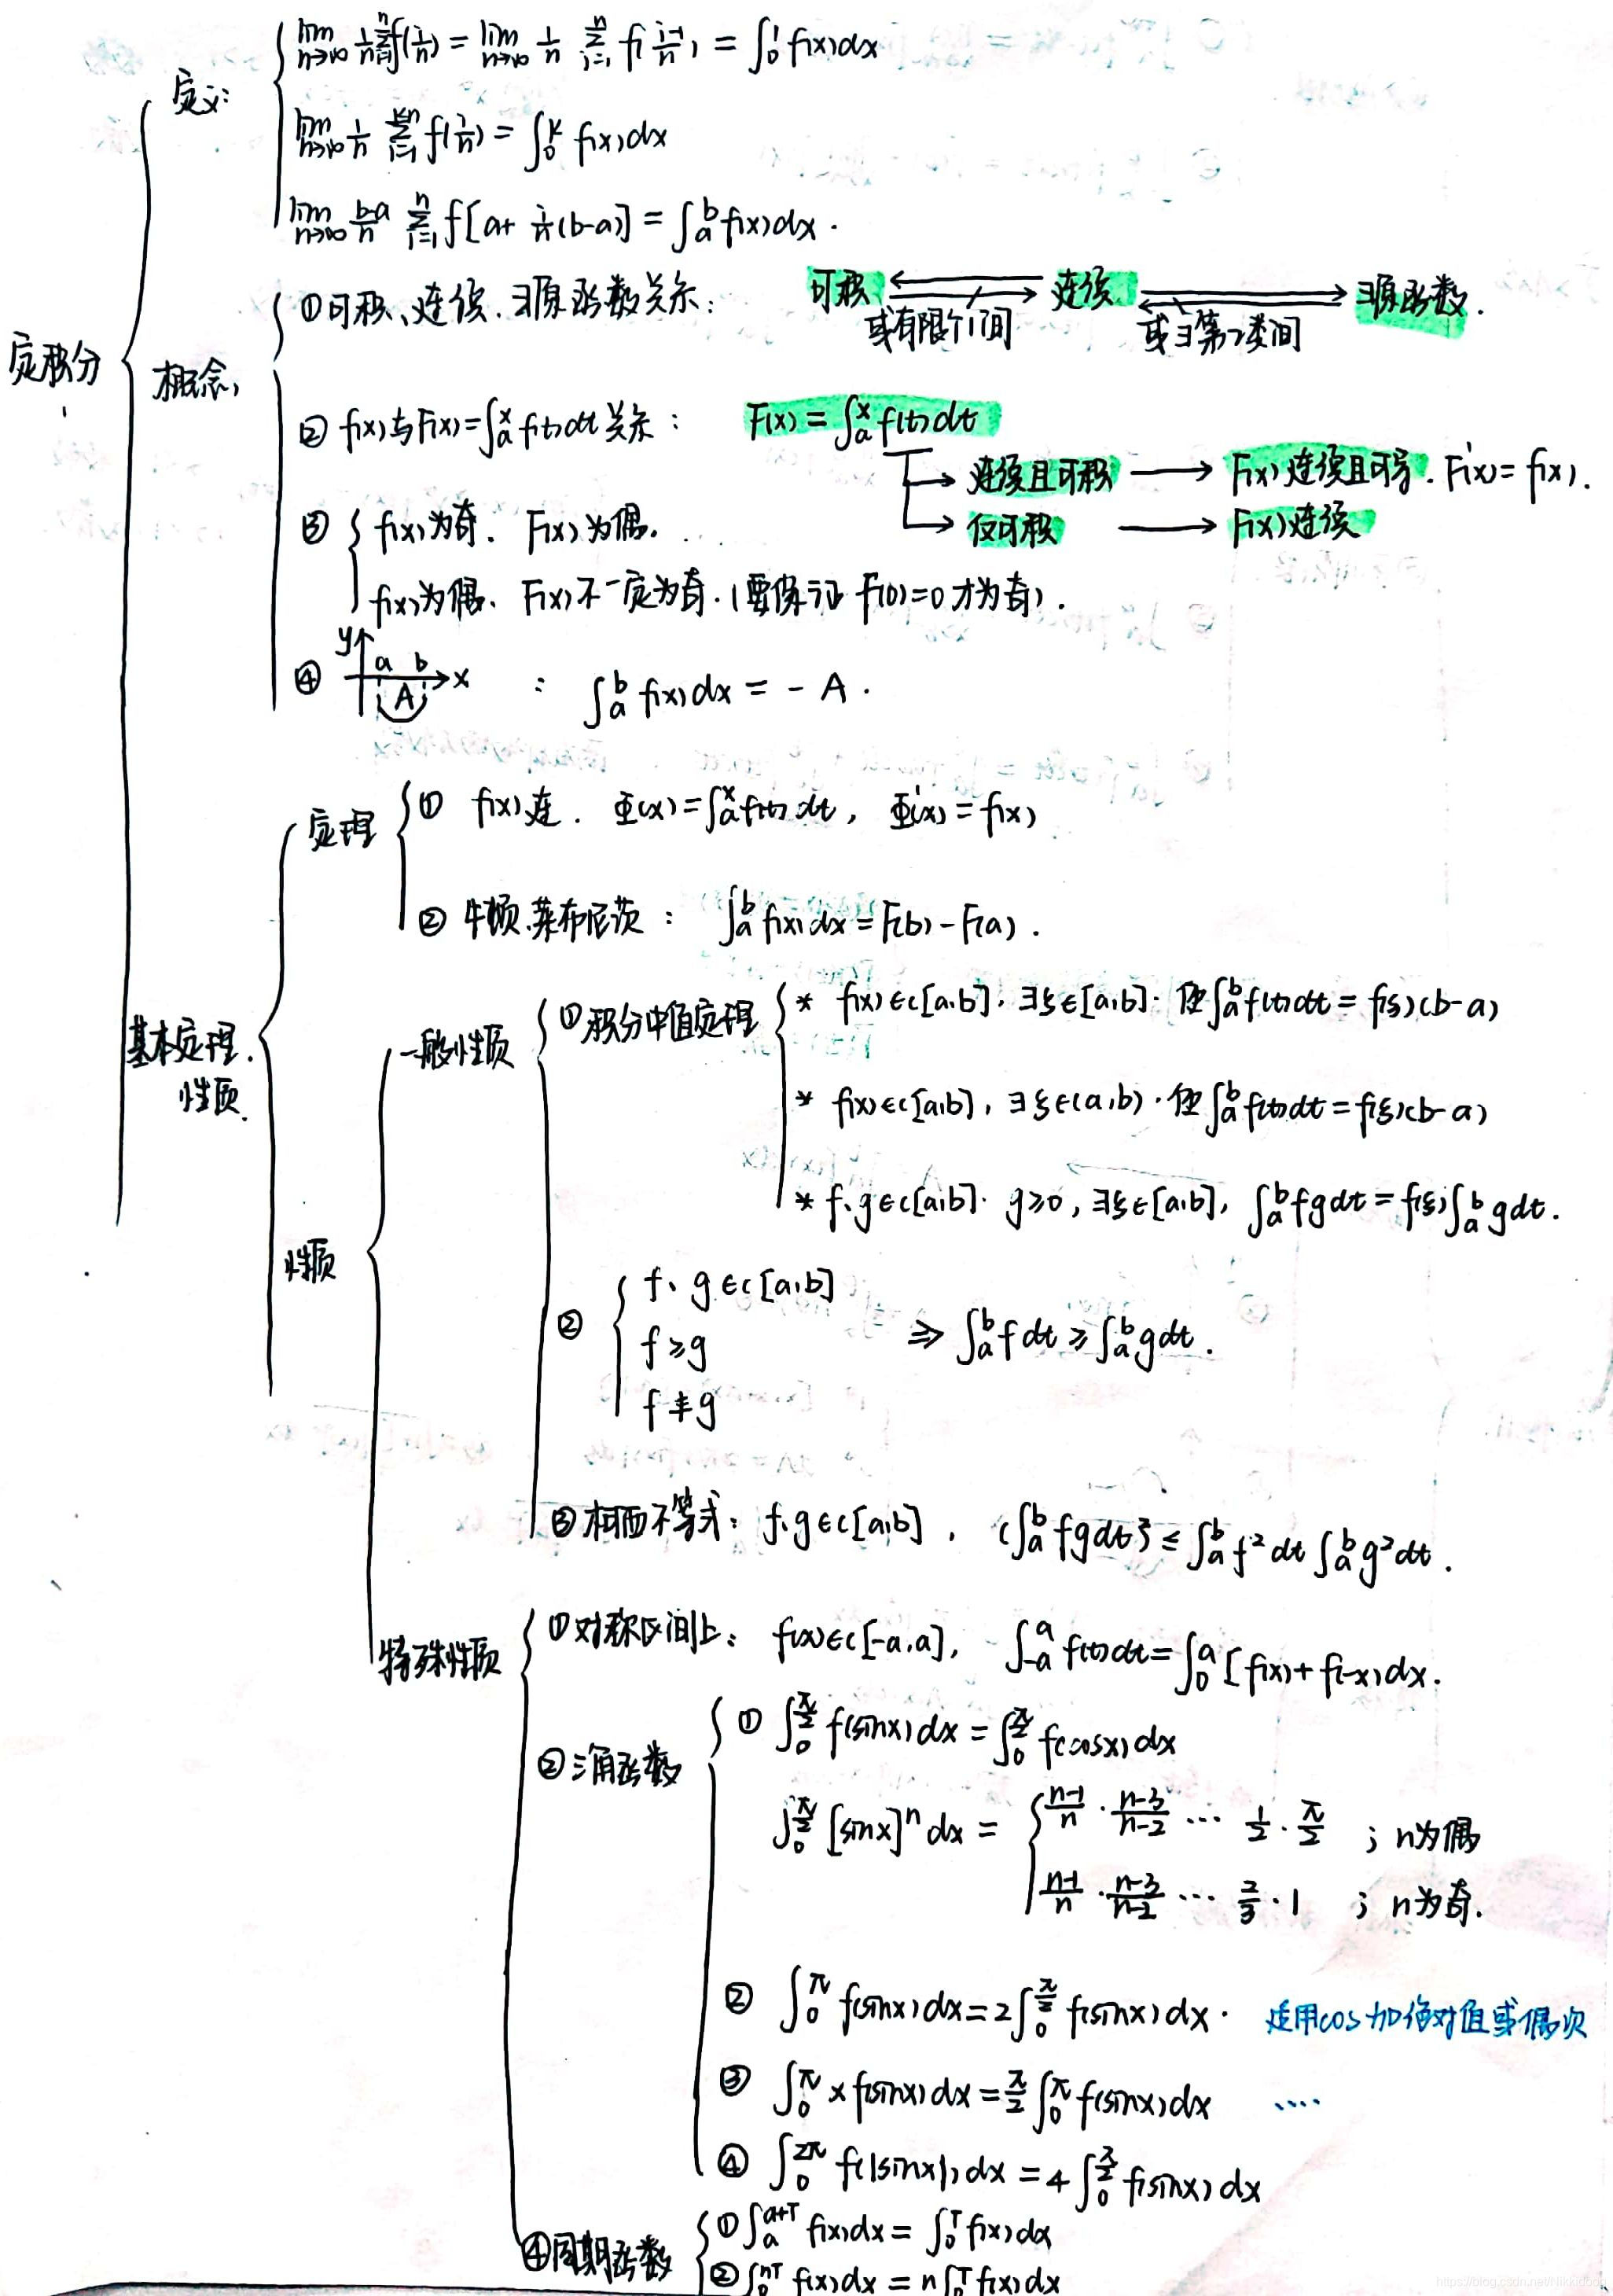 定积分
定义:
lim n→∞ 1/n Σ(i=1→n) f(i/n) = lim n→∞ 1/n Σ(i=1→n) f(i-1/n) = ∫₀¹ f(x)dx
lim n→∞ 1/n Σ(i=1→kn) f(i/n) = ∫₀ᵏ f(x)dx
lim n→∞ b-a/n Σ(i=1→n) f[a+ i/n(b-a)] = ∫ₐᵇ f(x)dx.
概念,
①可积、连续、∃原函数关系: 可积 连续 ∃原函数.
或有限个间 或∃第2类间
② f(x)与F(x)=∫ₐˣ f(t)dt关系: F(x)=∫ₐˣ f(t)dt
连续且可积 → F(x)连续且可导. F'(x)=f(x).
仅可积 → F(x)连续
③ f(x)为奇. F(x)为偶.
f(x)为偶、F(x)不一定为奇.(要保证 F(0)=0才为奇).
④ y a b x A : ∫ₐᵇ f(x)dx = -A.
基本定理.
性质.
定理
① f(x)连. Φ(x)=∫ₐˣ f(t)dt, Φ'(x)=f(x)
② 牛顿.莱布尼茨: ∫ₐᵇ f(x)dx=F(b)-F(a).
性质
一般性质
①积分中值定理
* f(x)∈c[a,b]. ∃ξ∈[a,b]. 使∫ₐᵇ f(t)dt=f(ξ)(b-a)
* f(x)∈c[a,b], ∃ξ∈(a,b). 使∫ₐᵇ f(t)dt=f(ξ)(b-a)
* f、g∈c[a,b]. g≥0, ∃ξ∈[a,b], ∫ₐᵇ fgdt=f(ξ)∫ₐᵇ gdt.
②
f、g∈c[a,b]
f≥g ⇒ ∫ₐᵇ fdt ≥ ∫ₐᵇ gdt.
f≢g
③柯西不等式: f、g∈c[a,b], (∫ₐᵇ fgdt)² ≤ ∫ₐᵇ f²dt ∫ₐᵇ g²dt.
特殊性质
①对称区间上: f(x)∈c[-a,a], ∫₋ₐᵃ f(t)dt=∫₀ᵃ [f(x)+f(-x)dx.
②三角函数
① ∫₀^(π/2) f(sinx)dx=∫₀^(π/2) f(cosx)dx
∫₀^(π/2) [sinx]ⁿdx = n-1/n · n-3/n-2 ··· 1/2 · π/2 ; n为偶
n-1/n · n-3/n-2 ··· 2/3 · 1 ; n为奇.
② ∫₀^π f(sinx)dx=2∫₀^(π/2) f(sinx)dx. 适用cos加绝对值或偶次
③ ∫₀^π xf(sinx)dx=π/2 ∫₀^π f(sinx)dx ····
④ ∫₀^(2π) f(|sinx|)dx=4∫₀^(π/2) f(sinx)dx
④周期函数
①∫ₐ^(a+T) f(x)dx=∫₀ᵀ f(x)dx
②∫₀^(nT) f(x)dx=n∫₀ᵀ f(x)dx